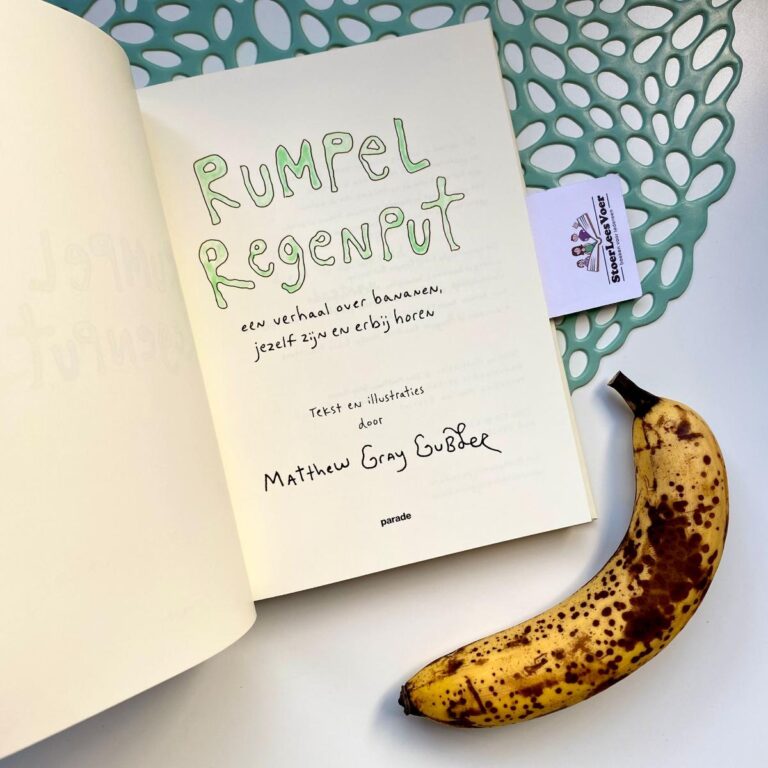 RUMPEL
REGENPUT
een verhaal over bananen,
jezelf zijn en erbij horen
Tekst en illustraties
door
Matthew Gray Gubler
parade
StoerLeesVoer
boeken voor iedereen